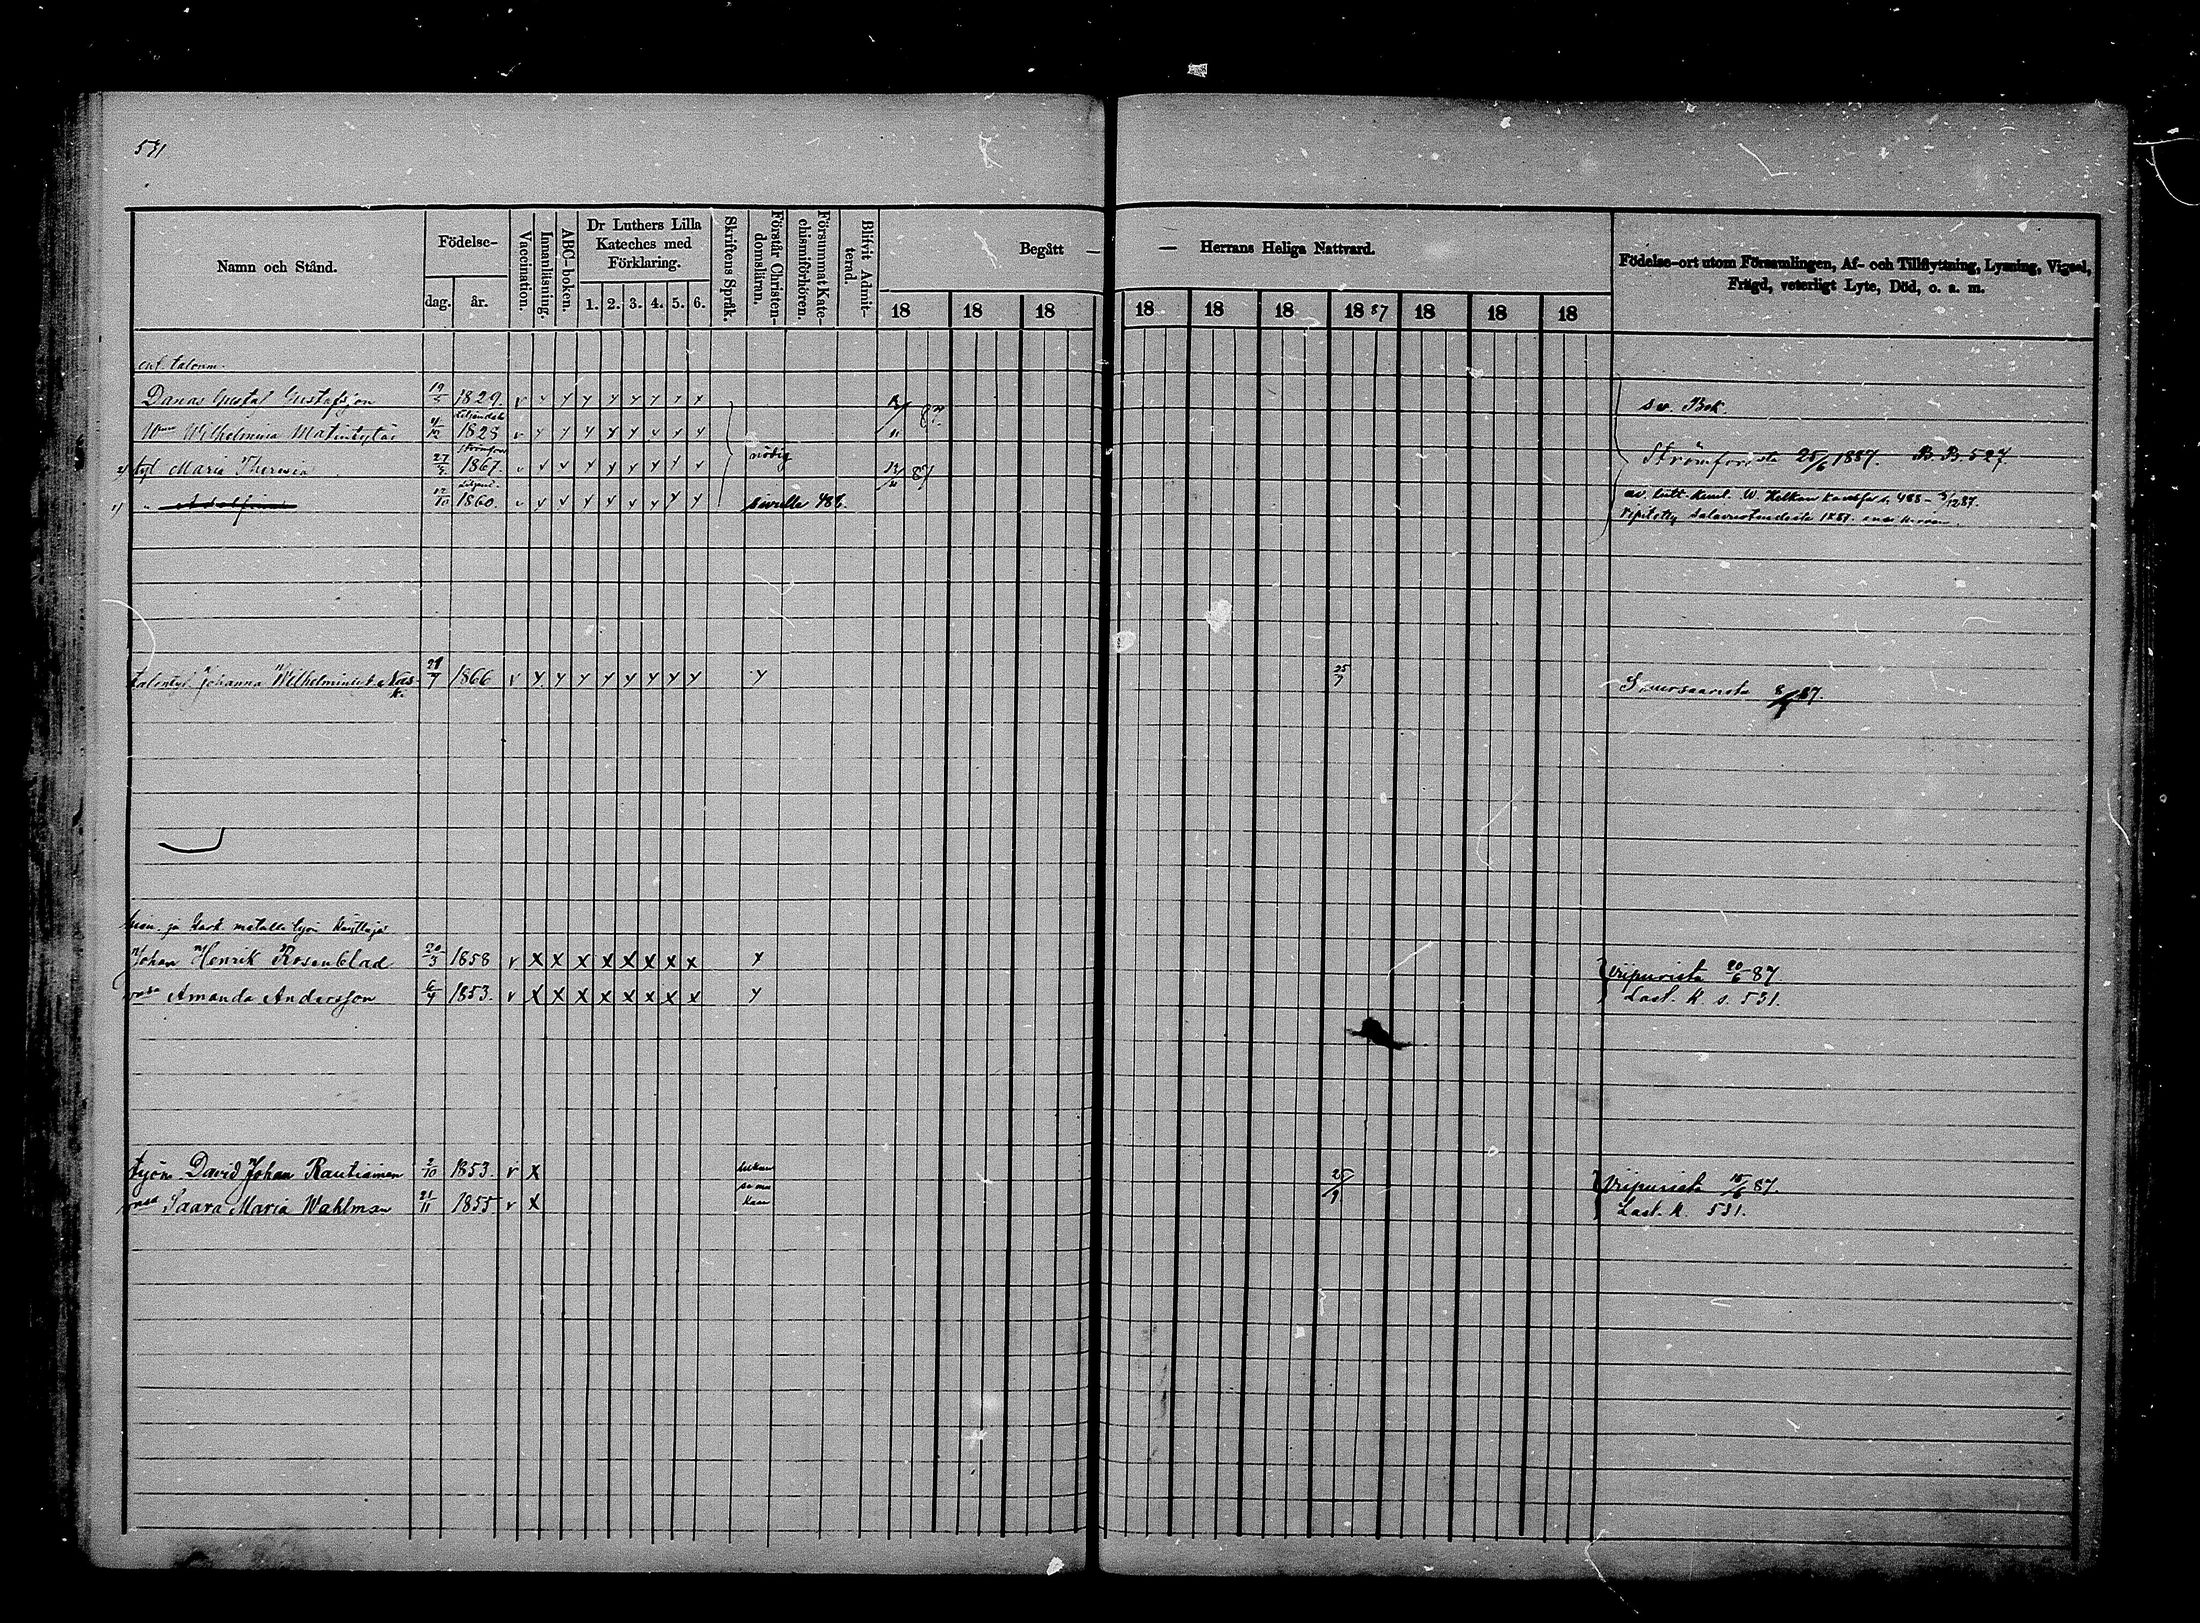 531
Namn och Stånd.
Födelse-
dag.
år.
Vaccination.
Innanläsning.
ABC-boken.
Dr Luthers Lilla
Kateches med
Förklaring.
1. 2. 3. 4. 5. 6.
Skriftens Språk.
Förstår Christen-
domsläran.
Försummat Kate-
chismiförhören.
Blifvit Admit-
terad.
Begått — — Herrans Heliga Nattvard.
18 18 18 18 18 18 1887 18 18 18
Födelse-ort utom Församlingen, Af- och Tillflyttning, Lysning, Vigsel,
Frägd, veterligt Lyte, Död, o. a. m.
ent. talonm.
Danas Gustaf Gustafsson 19/5 1829. v y y y y y y y y
Liljendal
Wmo Wilhelmina Matintytär 4/12 1828 v y y y y y y y y 87
Strömfors
2) tyt Maria Theresia 27/2 1867. v v v y y y y y v nödig 87 Strömforsista 25/6 1887. B.B. 527.
1) " Adolfina 17/10 1860. v y y y y y y y y sivulle 486.
talontyt. Johanna Wilhelmina 29/7 1866 v y y y y y y y y y 25/7 Suursaaresta 8/7 87.
Johan Henrik Rosenblad 20/3 1858 v x x x x x x x x y Wiipurista 20/6 87
vmsa Amanda Andersson 6/4 1853. v x x x x x x x x y Last. k s. 531.
työm David Johan Rautiainen 2/10 1853. v x 25/9 Wiipurista 15/6 87.
vmsa Saara Maria Wahlman 21/11 1855 v x Last. k. 531.